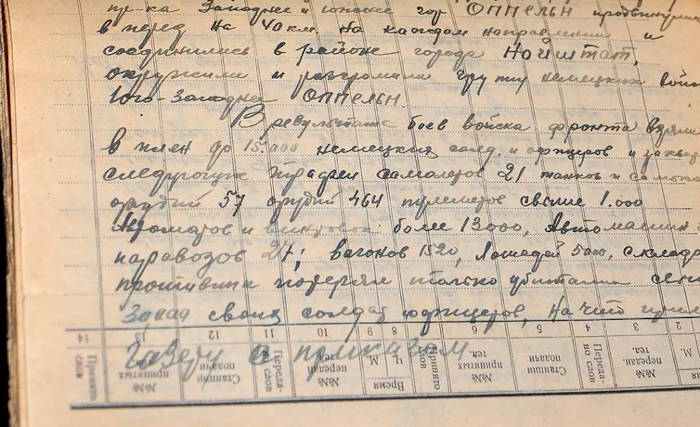 пр-ка Западнее и южнее гор ОППЕЛЬН
в перед на 40 км. на каждом направлении и
соединились в районе города Нойштат,
окружили и разгромили группу немецких
Юго-Западнее ОППЕЛЬН.
В результате боев войска фронта взяли
в плен до 15.000 немецких солд. и офицеров и
следующие трофеи самолетов 21 танков и
орудий 57 орудий 464 пулеметов свыше 1.000
и винтовок более 13000, Автомашин
паравозов 27; вагонов 1520, Лошадей 5000, складов
противник потерял только убитыми
своих солдат и офицеров,
Газету с приказом
14 13 12 11 10 9 8 7 6 5 4 3 2
Принято слов
№№ принятых
Станции подачи
Переда- слов
№№ передан тел.
Время
Ч. М.
Принято слов
№№ принятых тел.
Станции подачи
Переда- но слов
№№ передан. тел.
М.